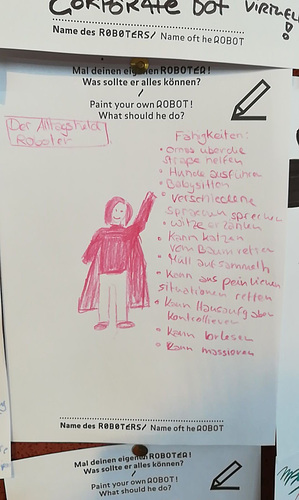 CORPORATE BOT VIRTUELL!
Name des ROBOTERS/ Name of the ROBOT
Mal deinen eigenen ROBOTER!
Was sollte er alles können?
/
Paint your own ROBOT!
What should he do?
Der Alltagshelden
Roboter
Fähigkeiten:
• Omas über die
Straße helfen
• Hunde ausführen
• Babysitten
• verschiedene
Sprachen sprechen
• Witze erzählen
• Kann Katzen
vom Baum retten
• Müll aufsammeln
• Kann aus peinlichen
situationen retten
• Kann Hausaufgaben
kontrollieren
• Kann vorlesen
• Kann massieren
Name des ROBOTERS/ Name of the ROBOT
Mal deinen eigenen ROBOTER!
Was sollte er alles können?
/
Paint your own ROBOT!
What should he do?